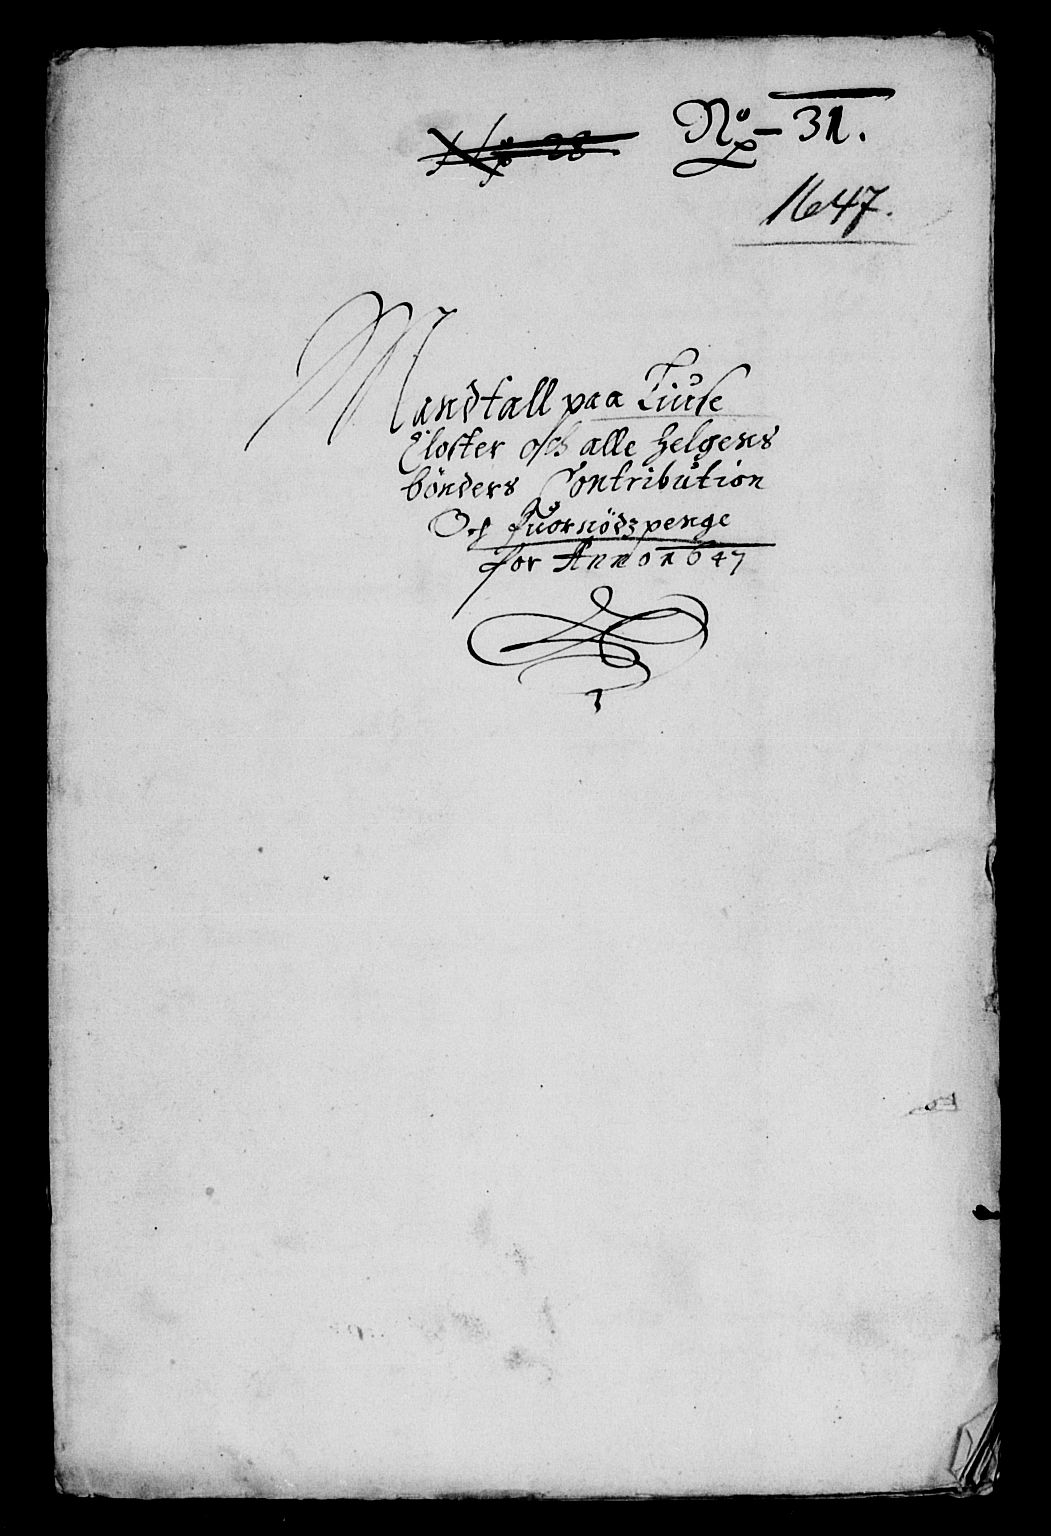 No 28.
No – 31.
1647.
Mandtall paa Tiuse
Closter och alle helgens
bönders Contribution
Och Quornödzpenge
for Anno 1647